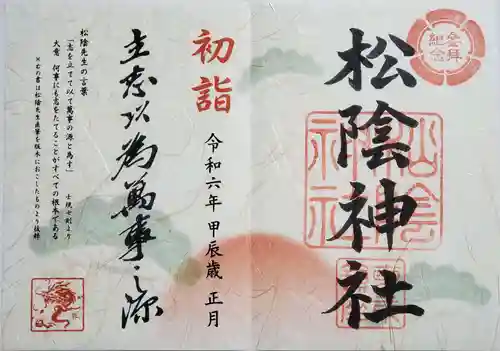 参拝
記念
松陰神社
松陰神社
初詣
令和六年 甲辰歳 正月
立志以為萬事之源
松陰先生の言葉
「志を立てて以て萬事の源と為す」
士規七則より
大意 何事にも志をたてることがすべての根本である
※右の書は松陰先生直筆を版木におこしたものより抜粋